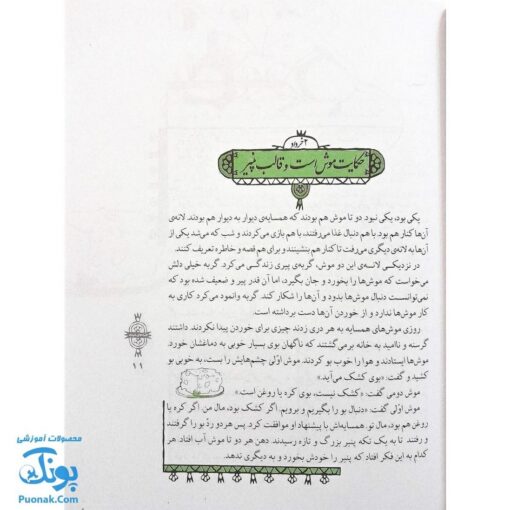 ۲ خرداد
حکایت موش است و قالب پنیر
یکی بود، یکی نبود. دو تا موش هم بودند که همسایه‌ی دیوار به دیوار هم بودند. لانه‌ی
آن‌ها کنار هم بود. با هم دنبال غذا می‌رفتند، با هم بازی می‌کردند و شب که می‌شد یکی از
آن‌ها به لانه‌ی دیگری می‌رفت تا کنار هم بنشینند و برای هم قصه و خاطره تعریف کنند.
در نزدیکی لانه‌ی این دو موش، گربه‌ی پیری زندگی می‌کرد. گربه خیلی دلش
می‌خواست که موش‌ها را بخورد و جان بگیرد، اما آن قدر پیر و ضعیف شده بود که
نمی‌توانست دنبال موش‌ها بدود و آن‌ها را شکار کند. گربه وانمود می‌کرد کاری به
کار موش‌ها ندارد و از خوردن آن‌ها دست برداشته است.
روزی موش‌های همسایه به هر دری زدند چیزی برای خوردن پیدا نکردند. داشتند
گرسنه و ناامید به خانه برمی‌گشتند که ناگهان بوی بسیار خوبی به دماغشان خورد.
موش‌ها ایستادند و هوا را خوب بو کردند. موش اوّلی چشم‌هایش را بست، به خوبی بو
کشید و گفت: «بوی کشک می‌آید.»
موش دومی گفت: «کشک نیست، بوی کره یا روغن است.»
موش اوّلی گفت: «دنبال بو را بگیریم و برویم. اگر کشک بود، مال من اگر کره یا
روغن هم بود، مال تو. همسایه‌اش با پیشنهاد او موافقت کرد. پس هر دو ردّ بو را گرفتند
و رفتند تا به یک تکه پنیر بزرگ و تازه رسیدند. دهن هر دو تا موش آب افتاد هر
کدام به این فکر افتاد که پنیر را خودش بخورد و به دیگری ندهد.
۱۱
محصولات آموزشی
پونک
Puonak.Com